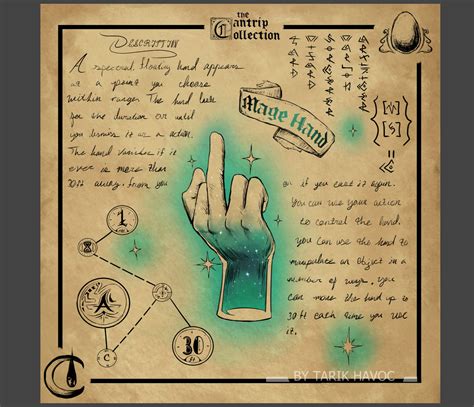 the
Cantrip
Collection
Description
A spectral, floating hand appears
at a point you choose
within range. The hand lasts
for the duration or until
you dismiss it as a action.
The hand vanishes if it
ever is more than
30ft away from you
Mage Hand
[W]
[S]
or if you cast it again.
You can use your action
to control the hand.
You can use the hand to
manipulate an object in a
number of ways. You
can move the hand up to
30 ft each time you use
it.
1
A
C
30
BY TARIK HAVOC